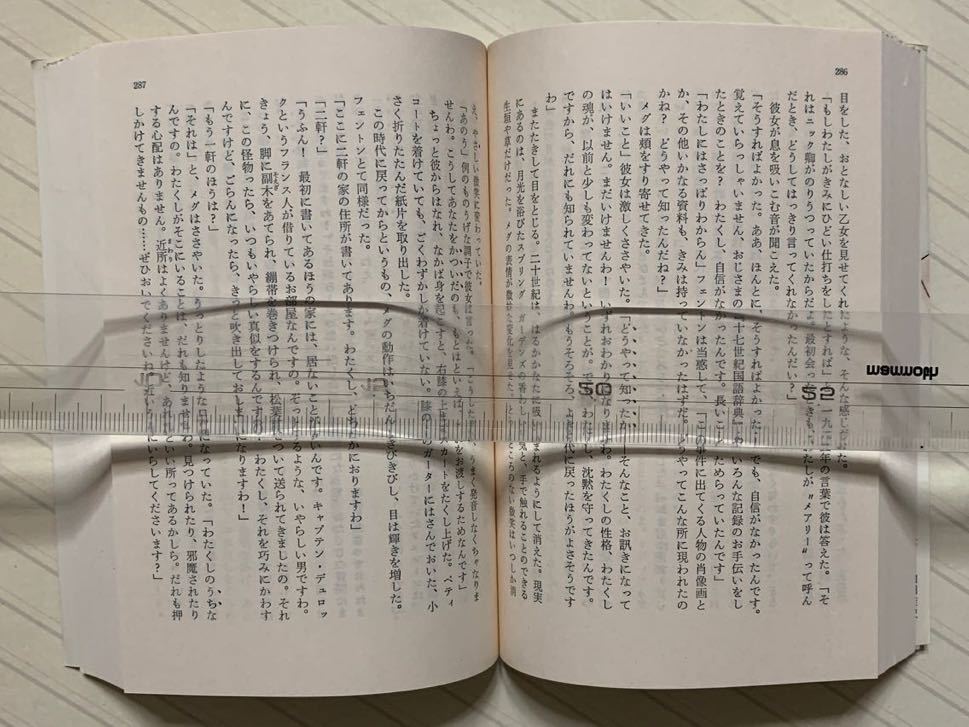 286
目をした、おとなしい乙女を見せてくれたような、そんな感じだった。
「もしわたしがきみにひどい仕打ちをしたとすれば」一九二五年の言葉で彼は答えた。「そ
れはニック卿がのりうつっていたからだよ。最初会ったときも、わたしが〝メアリー〟って呼ん
だとき、どうしてはっきり言ってくれなかったんだい？」
彼女が息を吸いこむ音が聞こえた。
「そうすればよかった。ああ、ほんとに、そうすればよかった！でも、自信がなかったんです。
覚えていらっしゃいません、おじさまの『十七世紀国語辞典』や、いろんな記録のお手伝いをし
たときのことを？ わたくし、自信がなかったんです。長いことためらっていたんです」
「わたしにはさっぱりわからん」フェントンは当惑して、「この事件に出てくる人物の肖像画と
か、その他いかなる資料も、きみは持っていなかったはずだ。どうやってこんな所に現われたの
かね？ どうやって知ったんだね？」
メグは頬をすり寄せてきた。
「いいこと」彼女は激しくささやいた。「どうやって知ったか、そんなこと、お訊きになって
はいけません。まだいけませんわ！ いずれおわかりになりますわ。わたくしの性格、わたくし
の魂が、以前と少しも変わってないということが。で、わたくし、沈黙を守ってきたんです
ですから、だれにも知られていませんわ。もうそろそろ、よき時代に戻ったほうがよさそうです
わ」
またたきして目をとじる。二十世紀は、はるかかなたに吸いこまれるようにして消えた。現実
のものは、月光を浴びたスプリング・ガーデンズの香わしい夜気と、手で触れることのできる
生垣や草だけだった。メグの表情が微妙な変化を見せた。とらえどころのない微笑はいつしか消
287
え、やさしい微笑に変わっていた。
「あのう」例のものうげな調子で彼女は言った。「こうしたら、うまく発音しなくちゃなりま
せんわ。こうしてあなたをかついだのも、もとはといえば、をお渡しするためなんです」
ちょっと彼からはなれ、なかば身を起こすと、右膝の上までスカートをたくし上げた。ペティ
コートを着けていても、ごくわずかしか着けていない。膝の上のガーターにはさんでおいた、小
さく折りたたんだ紙片を取り出した。
この時代に戻ってからというもの、メグの動作はいちだんときびきびし、目は輝きを増した。
フェントンとて同様だった。
「ここに二軒の家の住所が書いてあります。わたくし、どちらかにおりますわ」
「二軒？」
「うふん！ 最初に書いてあるほうの家には、居ないことが多いんです。キャプテン・デュロッ
クというフランス人が借りているお部屋なんですの。ぞっとするような、いやらしい男ですわ。
きょう、脚に副木をあてられ、繃帯を巻きつけられ、松葉杖をついて送られてきましたの。それ
に、この怪物ったら、いつもいやらしい真似をするんですの！わたくし、それを巧みにかわす
んですけど、ごらんになったら、きっと吹き出しておしまいになりますわ！」
「もう一軒のほうは？」
「それは」と、メグはささやいた。うっとりしたような口調になっていた。「わたくしのうちな
んですの。わたくしがそこにいることは、だれも知りませんわ。見つけられたり、邪魔されたり
する心配はありません。近所はよくありませんけど、あれほどいい所ってあるかしら。だれも押
しかけてきませんもの……ぜひおいでくださいね、近いうちにいらしてくださいます？」